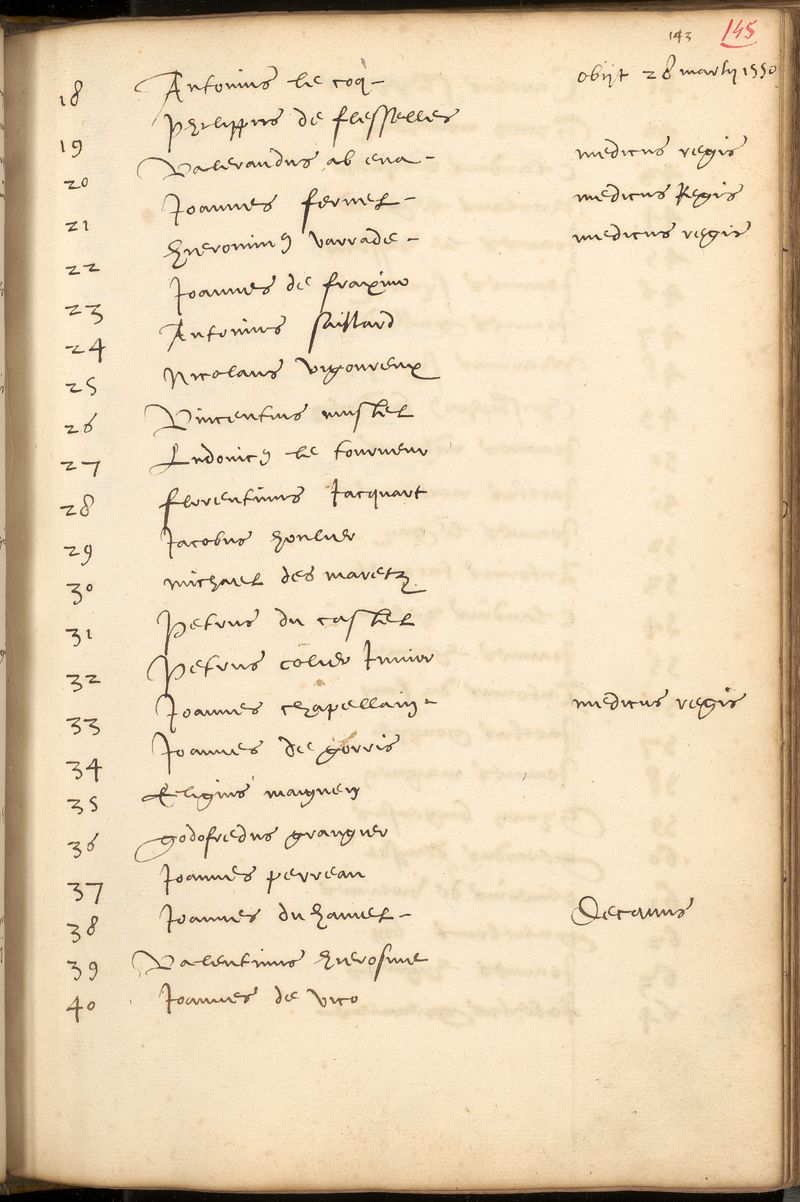 143 145
18 Antonius le coq - obijt 28 martij 1550
19 Philippus de flesselles
20 Valerandus ab ena - medicus regis
21 Joannes fernel - medicus Regis
22 hieronimus varrade - medicus regis
23 Joannes de fraxino
24 Antonius saillard
25 Nicolaus vigoureux
26 Vincentius mustel
27 Ludonicus le tourneur
28 florentinus Jacquart
29 Jacobus houlier
30 michael des maretz
31 Petrus du castel
32 Petrus colier Junior
33 Joannes chapellain - medicus regis
34 Joannes de gorris
35 Eligius maignen
36 godofredus grangier
37 Joannes perreau
38 Joannes du hamel - Decanus
39 Valentinus hierosme
40 Joannes de vico